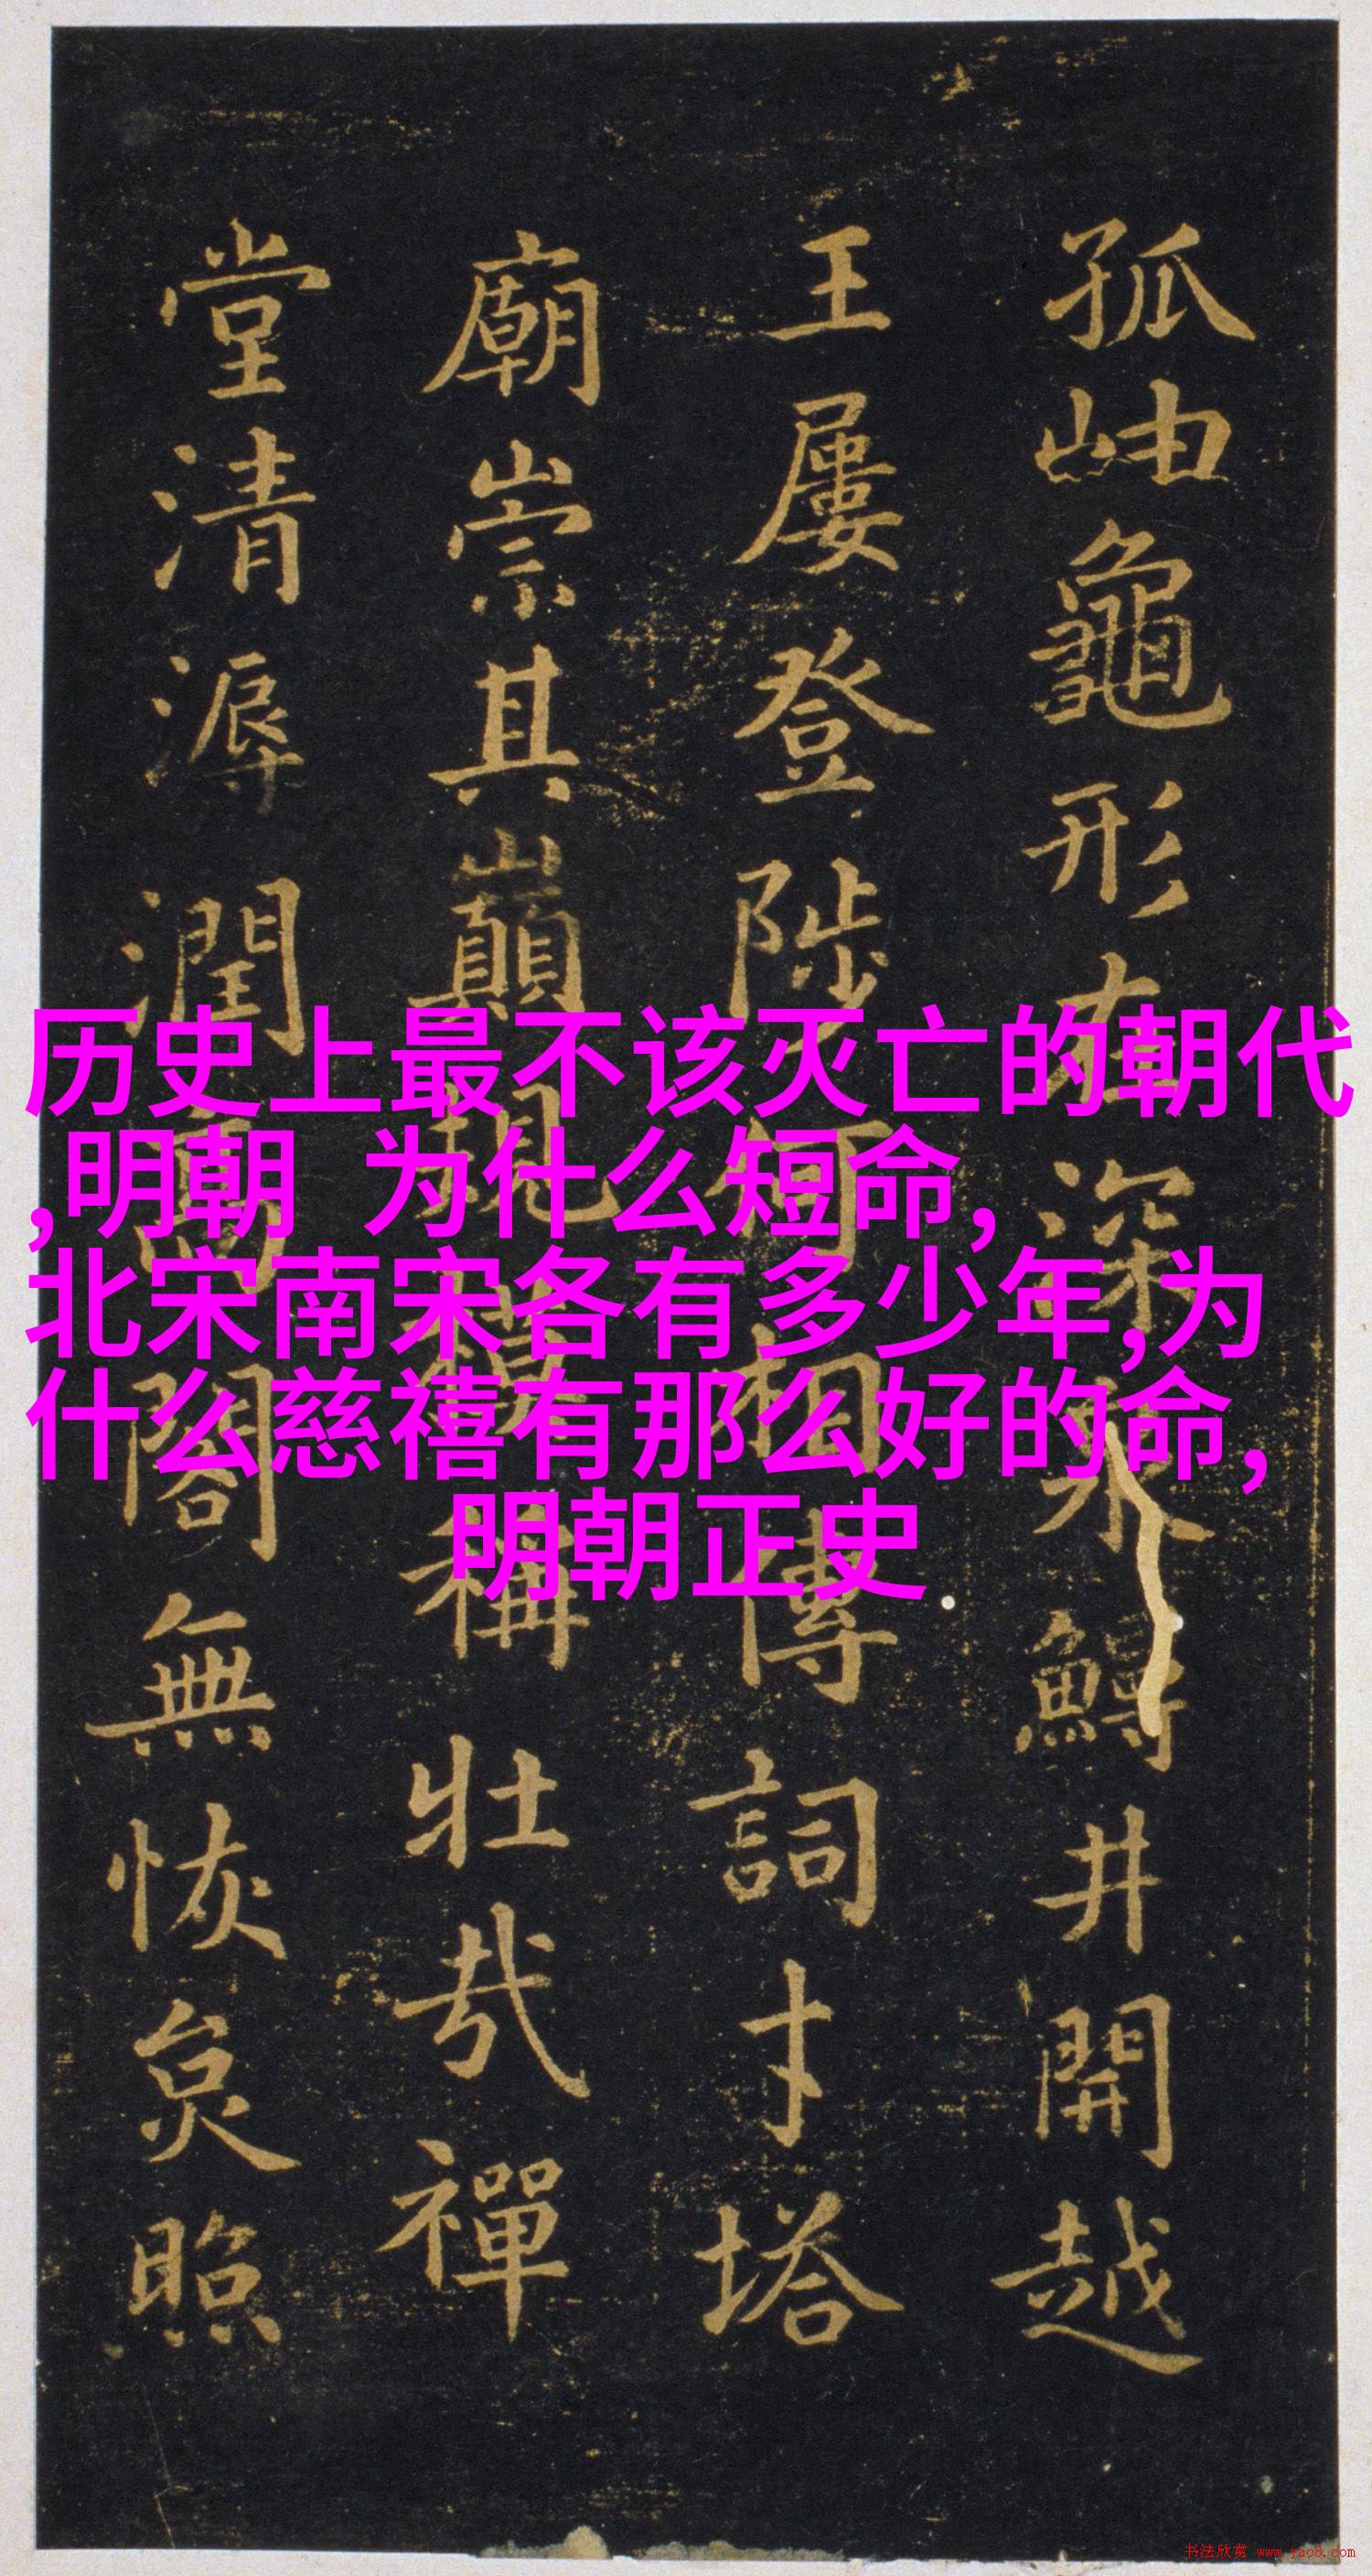 历史上最不该灭亡的朝代
,明朝 为什么短命,
北宋南宋各有多少年,为
什么慈禧有那么好的命,
明朝正史
孤岫龜形在深泉鱘井開越
王屢登陟何相傳詞才塔
廟崇其巔規模稱壮哉禪
堂清溽潤高閣無恢炱照
书法欣赏 www.yac8.com